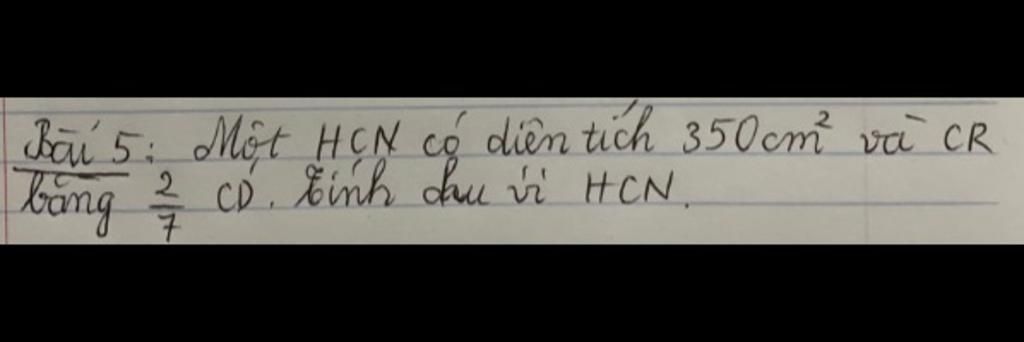 Bài 5: Một HCN có diện tích 350cm² và CR
bằng 2/7 CD. Tính chu vi HCN.